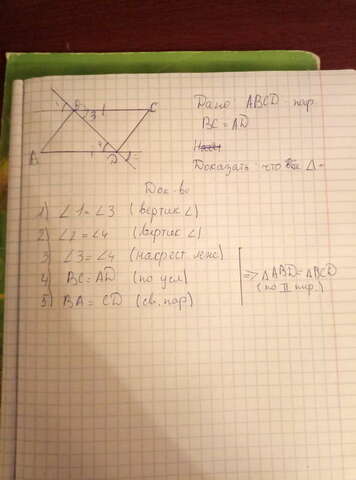 B
1
3
C
A
4
D
2
Дано ABCD пар.
BC = AD
Доказать что все Δ =
Док-во
1) ∠1 = ∠3 (вертик ∠)
2) ∠2 = ∠4 (вертик ∠)
3 ∠3 = ∠4 (накрест леж)
4) BC = AD (по усл)
5) BA = CD (св. пар)
=> ΔABD = ΔBCD
(по II пир.)